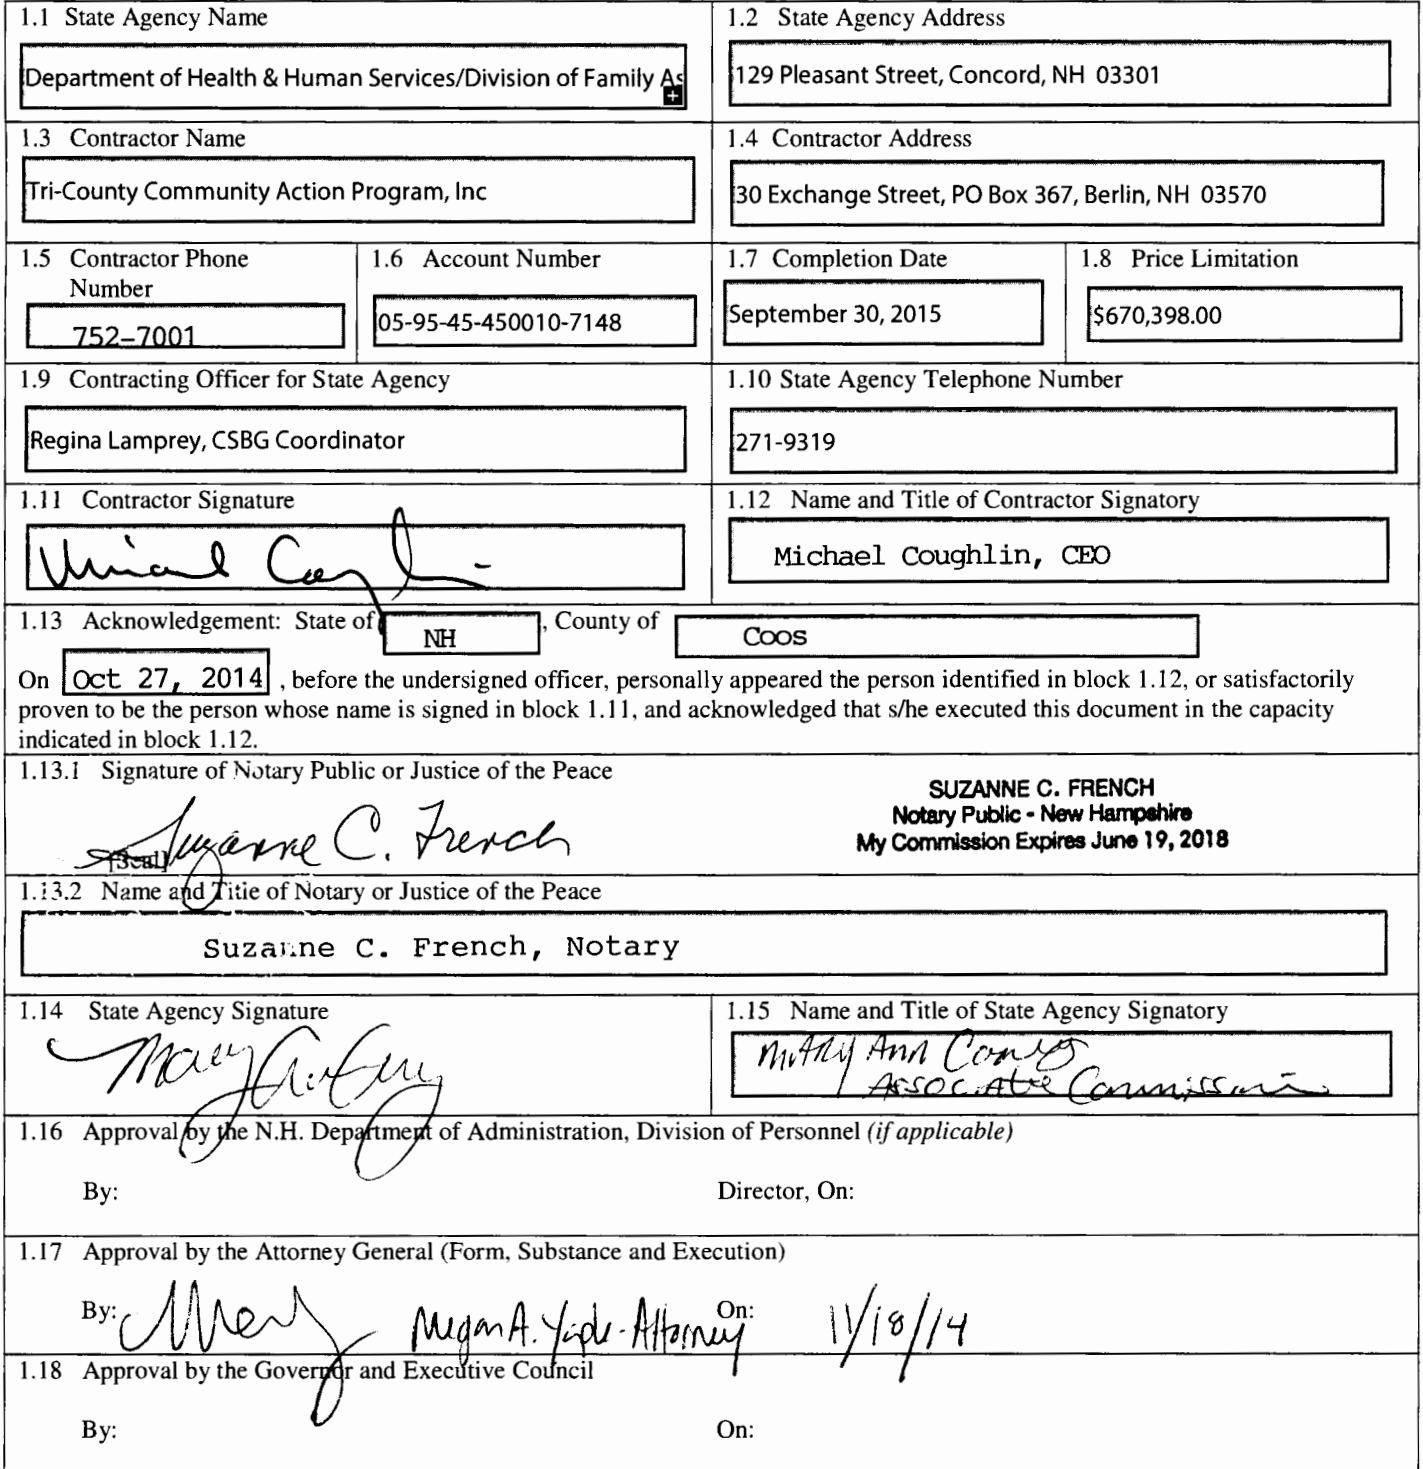 1.1 State Agency Name
1.2 State Agency Address
Department of Health & Human Services/Division of Family As
129 Pleasant Street, Concord, NH 03301
1.3 Contractor Name
1.4 Contractor Address
Tri-County Community Action Program, Inc
30 Exchange Street, PO Box 367, Berlin, NH 03570
1.5 Contractor Phone
Number
1.6 Account Number
1.7 Completion Date
1.8 Price Limitation
752-7001
05-95-45-450010-7148
September 30, 2015
$670,398.00
1.9 Contracting Officer for State Agency
1.10 State Agency Telephone Number
Regina Lamprey, CSBG Coordinator
271-9319
1.11 Contractor Signature
1.12 Name and Title of Contractor Signatory
Michael Coughlin, CEO
1.13 Acknowledgement: State of NH, County of Coos
On Oct 27, 2014, before the undersigned officer, personally appeared the person identified in block 1.12, or satisfactorily
proven to be the person whose name is signed in block 1.11, and acknowledged that s/he executed this document in the capacity
indicated in block 1.12.
1.13.1 Signature of Notary Public or Justice of the Peace
SUZANNE C. FRENCH
Notary Public - New Hampshire
My Commission Expires June 19, 2018
[Seal] Suzanne C. French
1.13.2 Name and Title of Notary or Justice of the Peace
Suzanne C. French, Notary
1.14 State Agency Signature
1.15 Name and Title of State Agency Signatory
Mary Ann Cooney
Associate Commissioner
1.16 Approval by the N.H. Department of Administration, Division of Personnel (if applicable)
By:
Director, On:
1.17 Approval by the Attorney General (Form, Substance and Execution)
By: Megan A. Yaple-Attorney On: 11/18/14
1.18 Approval by the Governor and Executive Council
By:
On: